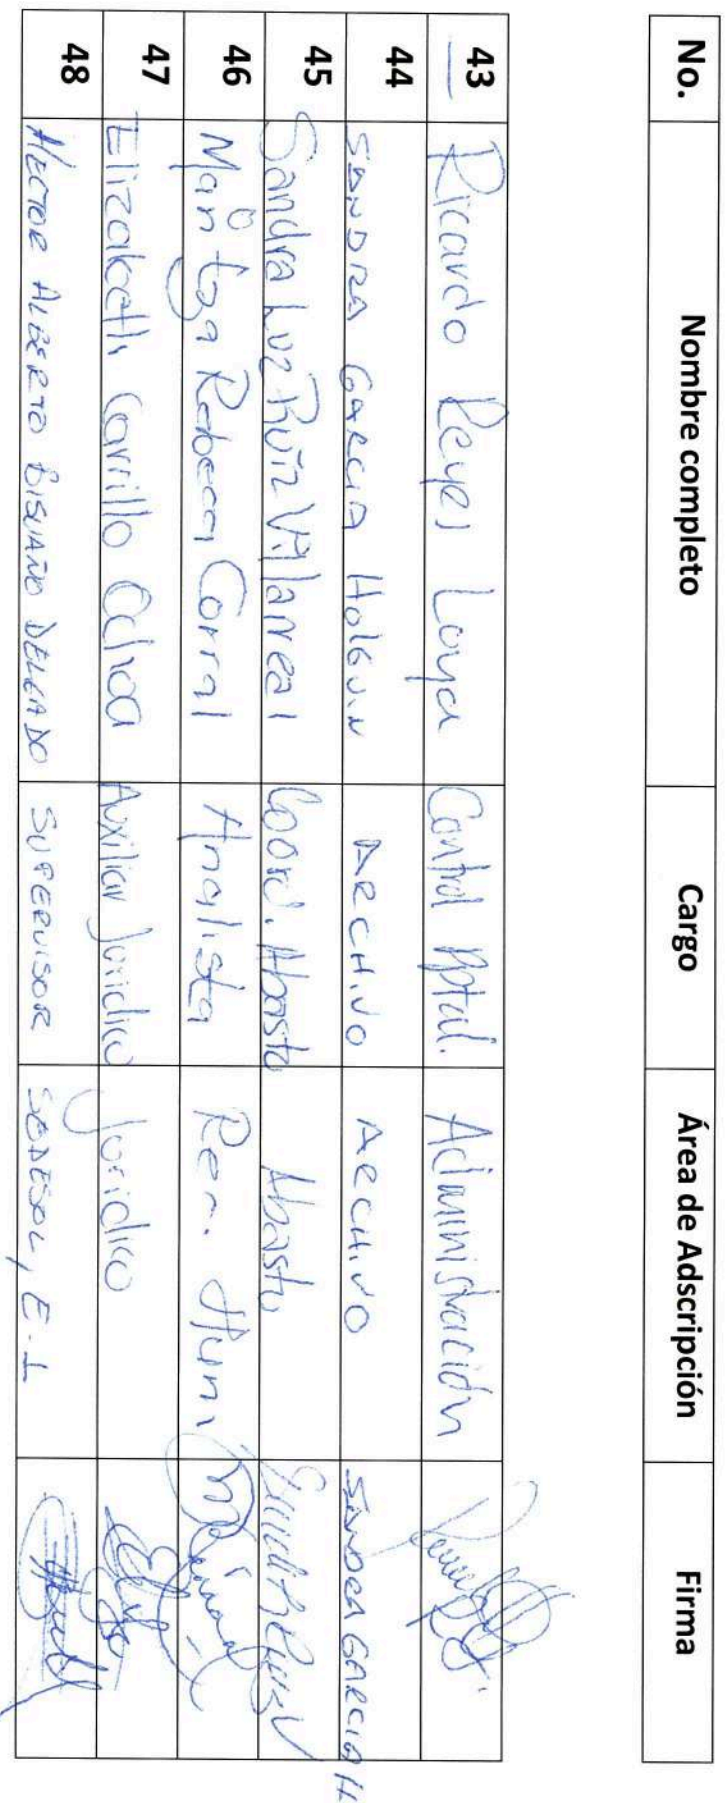 No. Nombre completo Cargo Área de Adscripción Firma
43 Ricardo Reyes Loya Control Pptal. Administración
44 SANDRA GARCIA HOLGUIN ARCHIVO ARCHIVO SANDRA GARCIA H
45 Sandra Luz Ruiz Villarreal Coord. Abasto Abasto
46 Maritza Rebeca Corral Analista Rec. Hum
47 Elizabeth Carrillo Ochoa Auxiliar Juridico Juridico
48 HECTOR ALBERTO BISUAÑO DELGADO SUPERVISOR SEDESOL, E.I